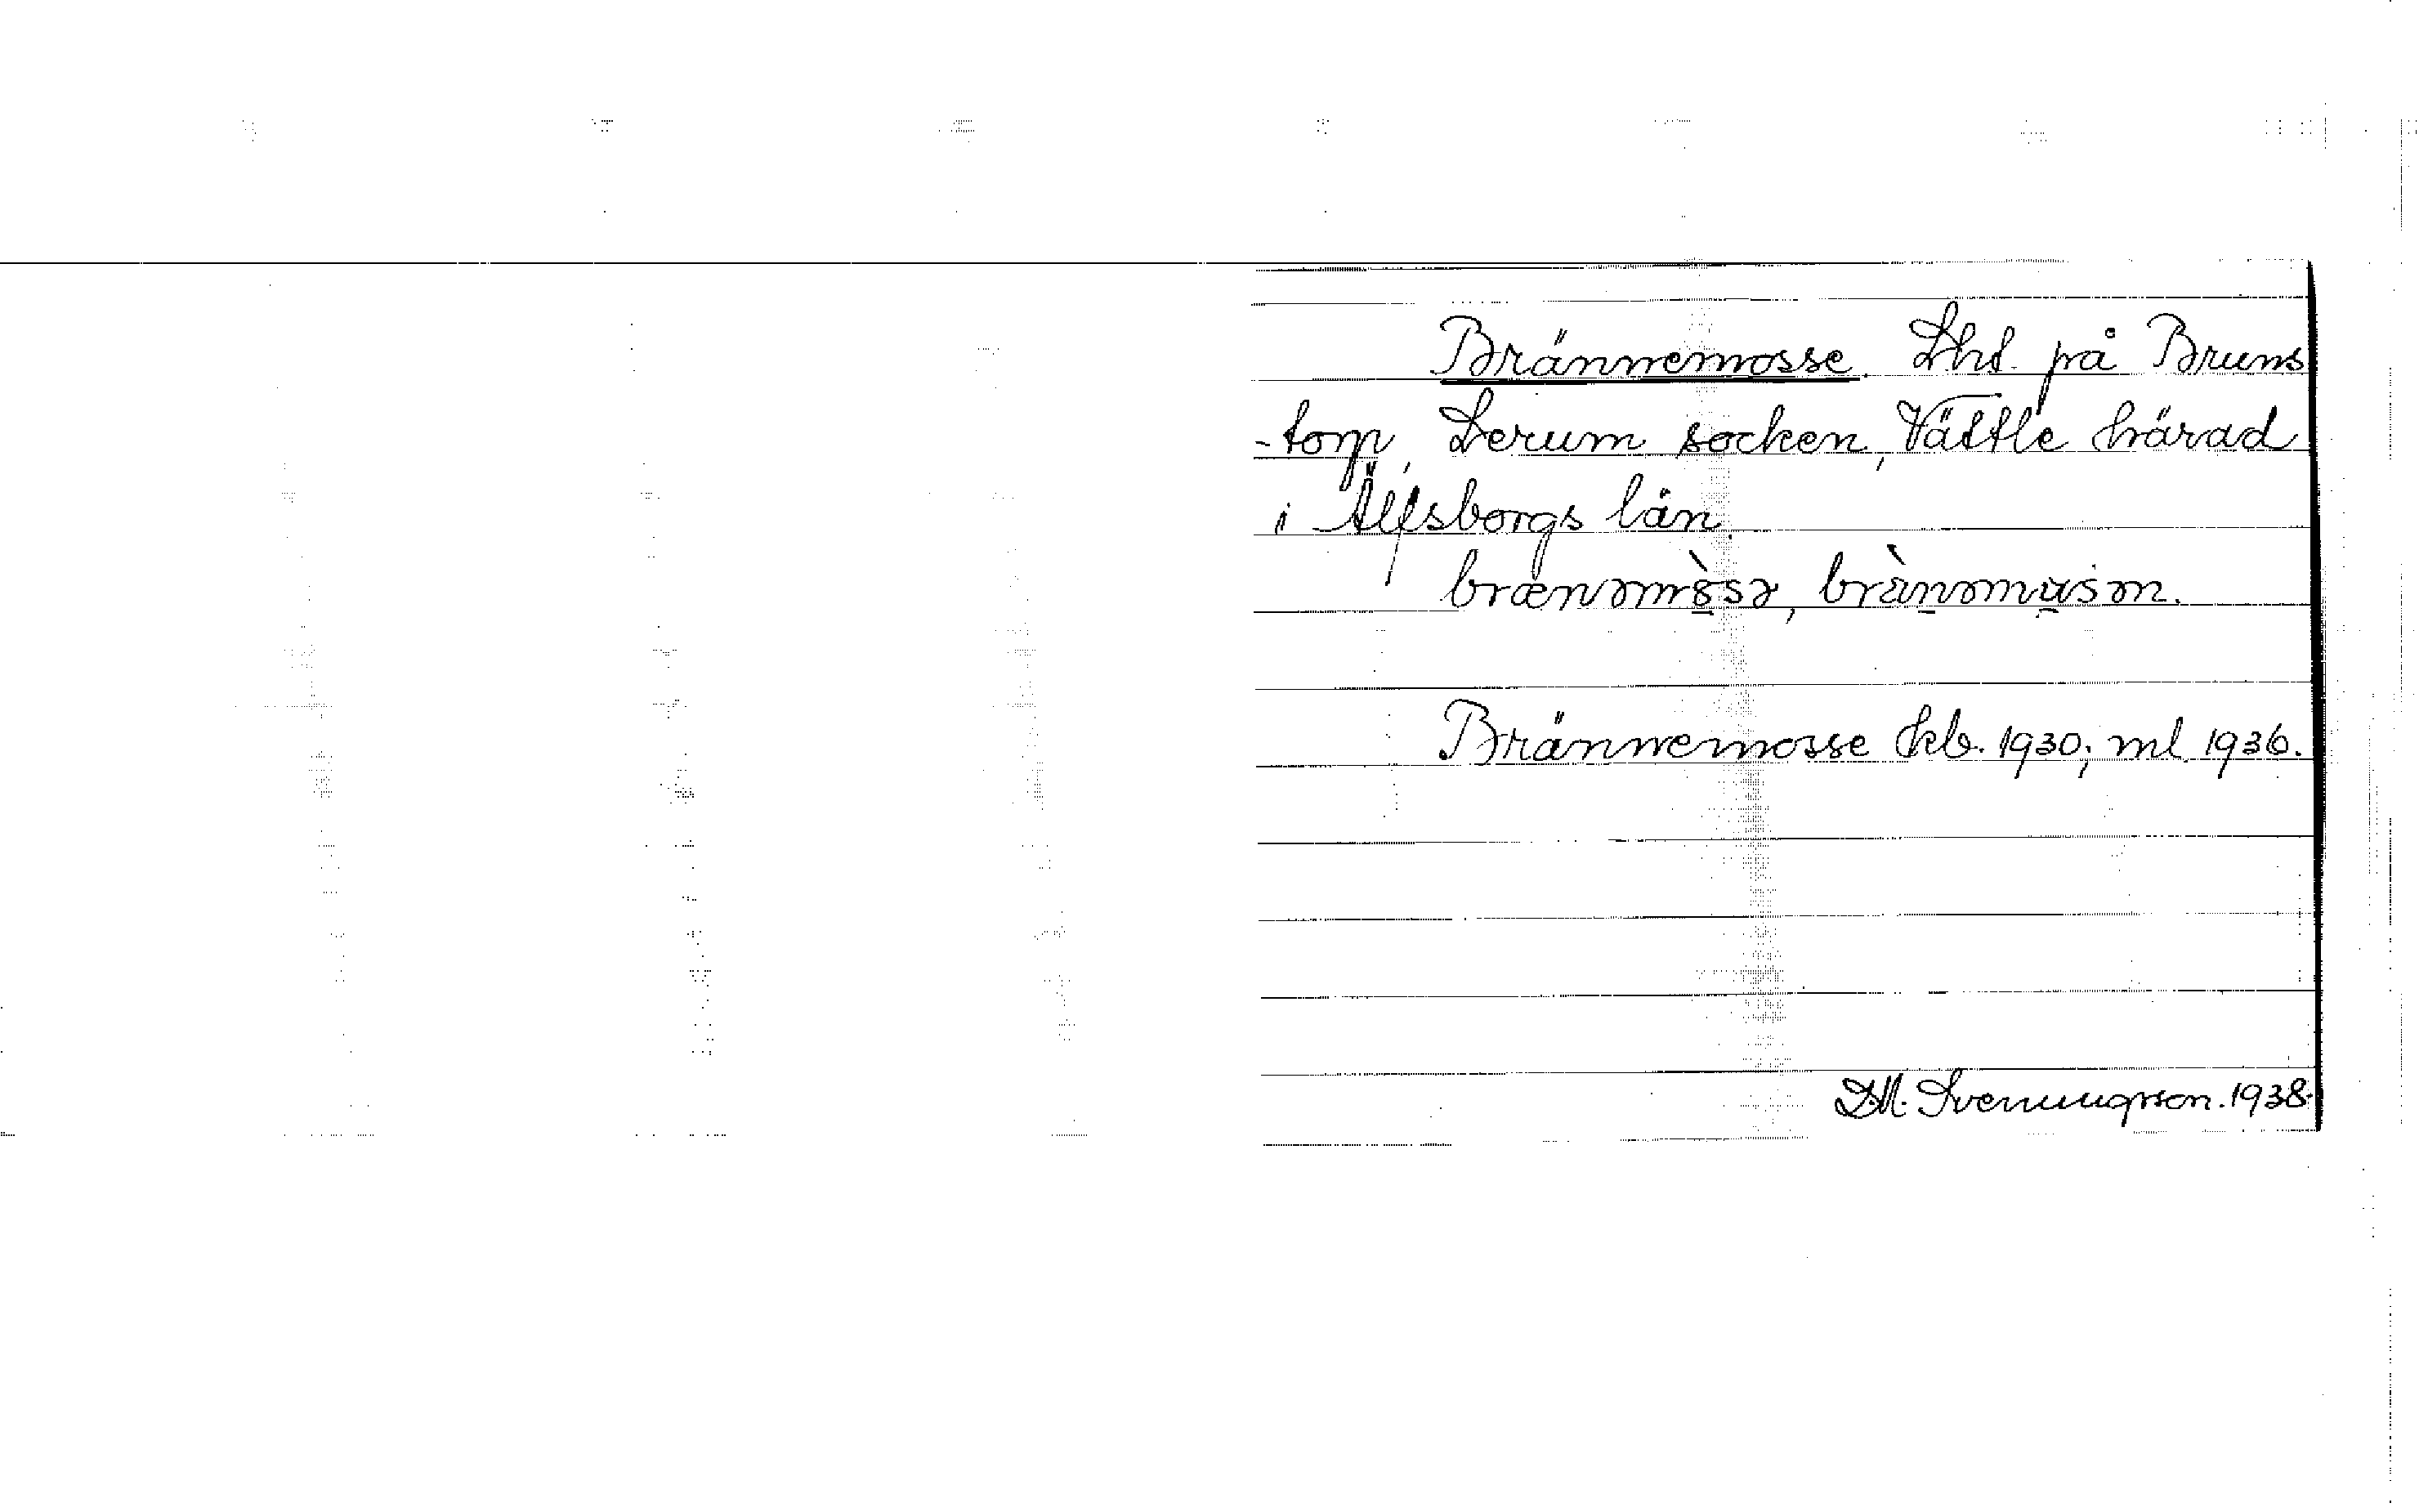 Brännemosse. Lht. på Bruns
-torp, Lerum socken, Vättle härad
i Älfsborgs län.
Brännemosse kb. 1930; ml. 1936.
D.M. Svenungsson. 1938.